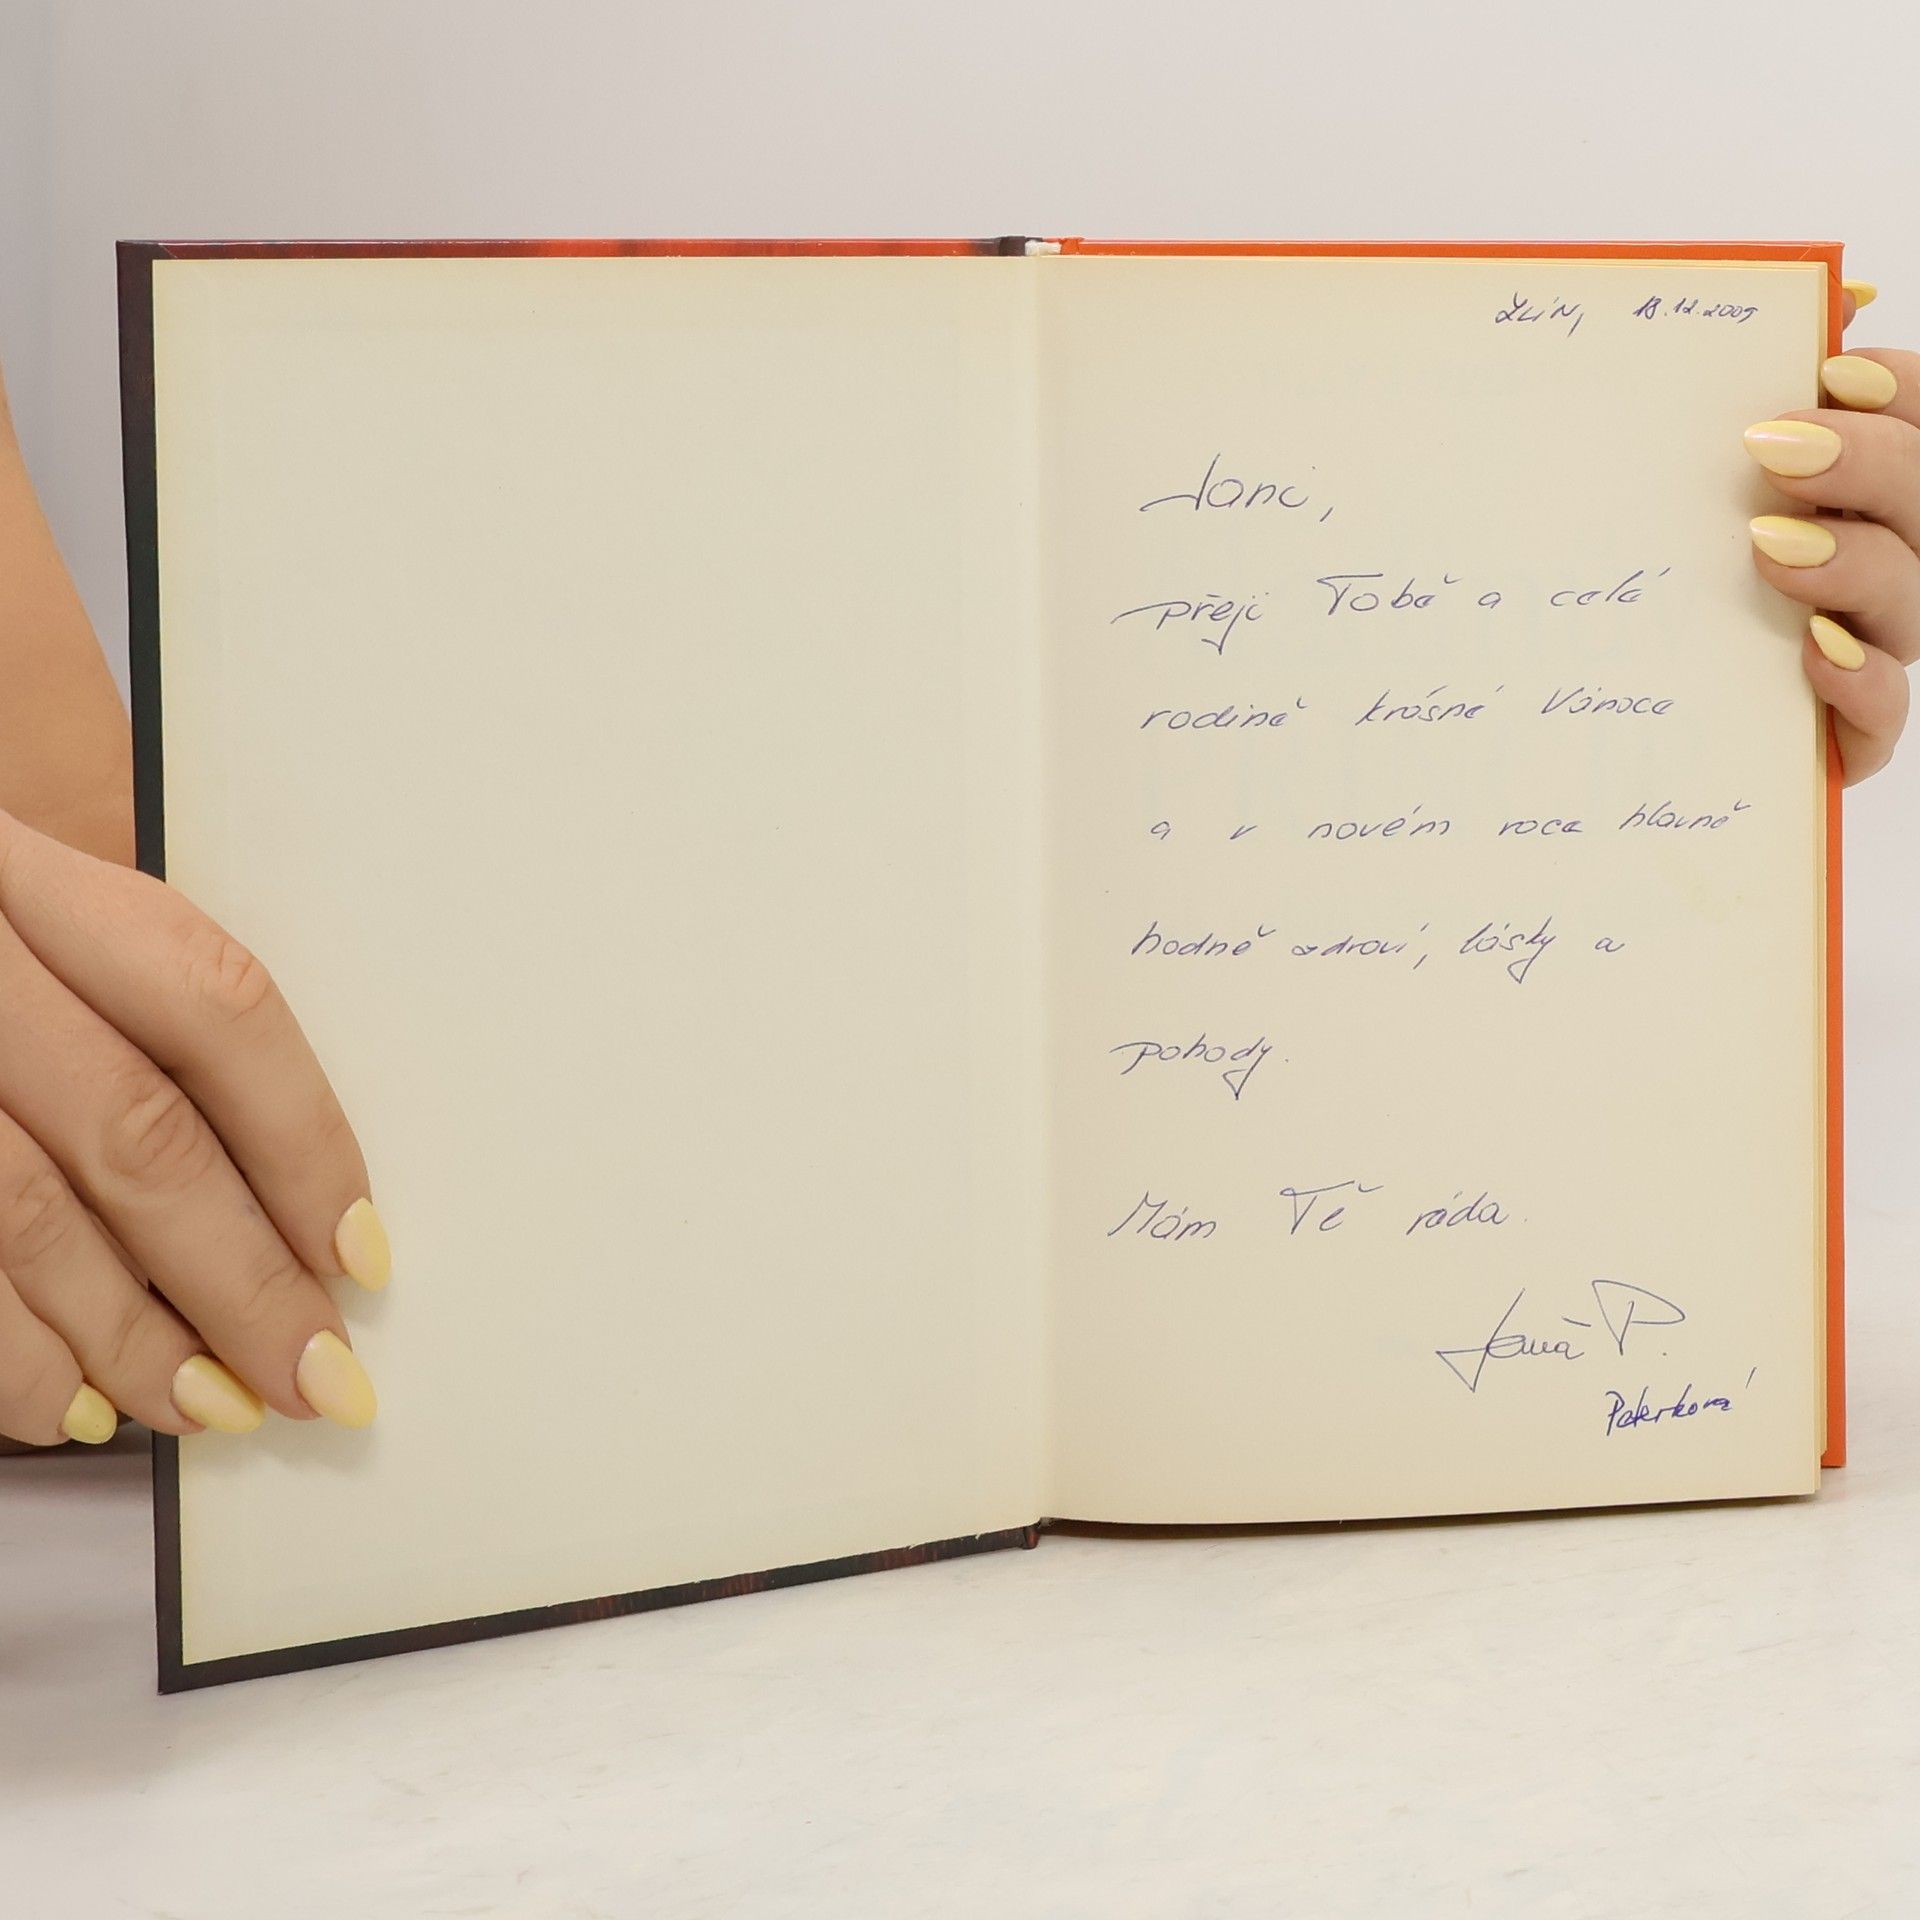 Zlín, 18.12.2009
Jani,
přeji Tobě a celé
rodině krásné Vánoce
a v novém roce hlavně
hodně zdraví, lásky a
pohody.
Mám Tě ráda.
Jana P.
Peterková